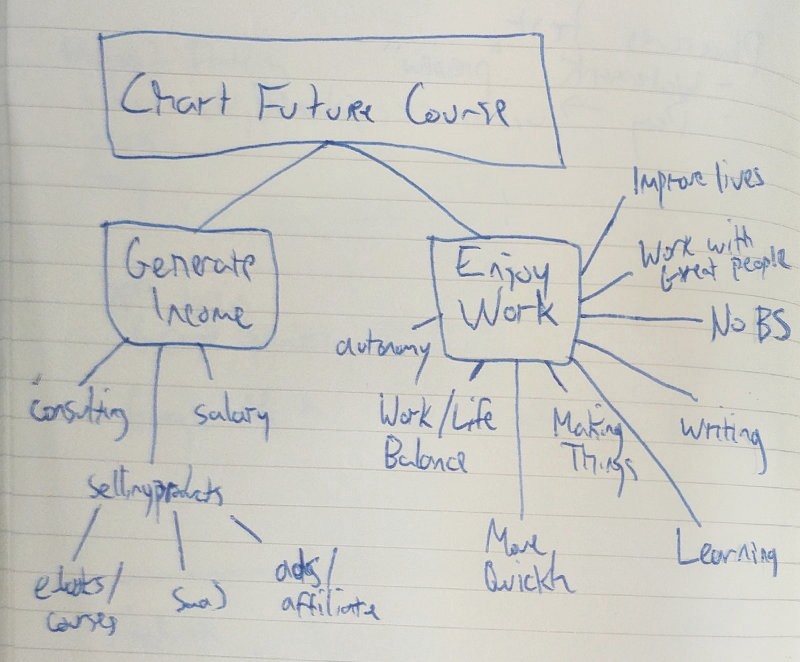 Chart Future Course
Generate
Income
Enjoy
Work
Improve lives
Work with
Great people
No BS
autonomy
consulting
salary
Work/Life
Balance
Making
Things
Writing
selling products
Move
Quickly
Learning
ebooks/
courses
SaaS
ads/
affiliate